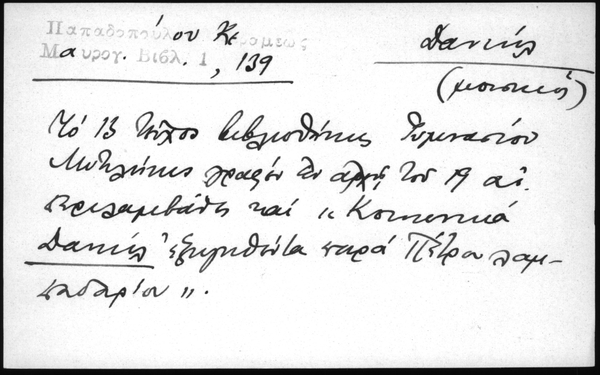 Παπαδοπούλου Κεραμεως
Μαυρογ. Βιβλ. 1, 139
Δανιήλ
(μουσικός)
Τό 13 τεῦχος βιβλιοθήκης Γυμνασίου
Μυτιλήνης γραφέν ἐν ἀρχῇ τοῦ 19 αἰ.
περιλαμβάνει καί "Κοινωνικά
Δανιήλ ἐξηγηθέντα παρά Πέτρου λαμ-
παδαρίου".